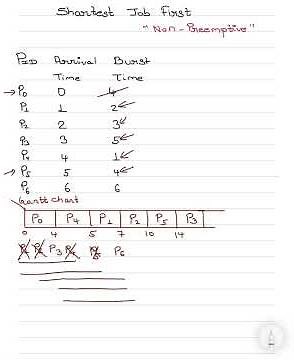 Shortest Job First
"Non-Preemptive"
PID Arrival Burst
Time Time
→P0 0 4
P1 1 2
P2 2 3
P3 3 5
P4 4 1
→P5 5 4
P6 6 6
Gantt Chart
P0 P4 P1 P2 P5 P3
0 4 5 7 10 14
P1 P2 P3 P4 P5 P6